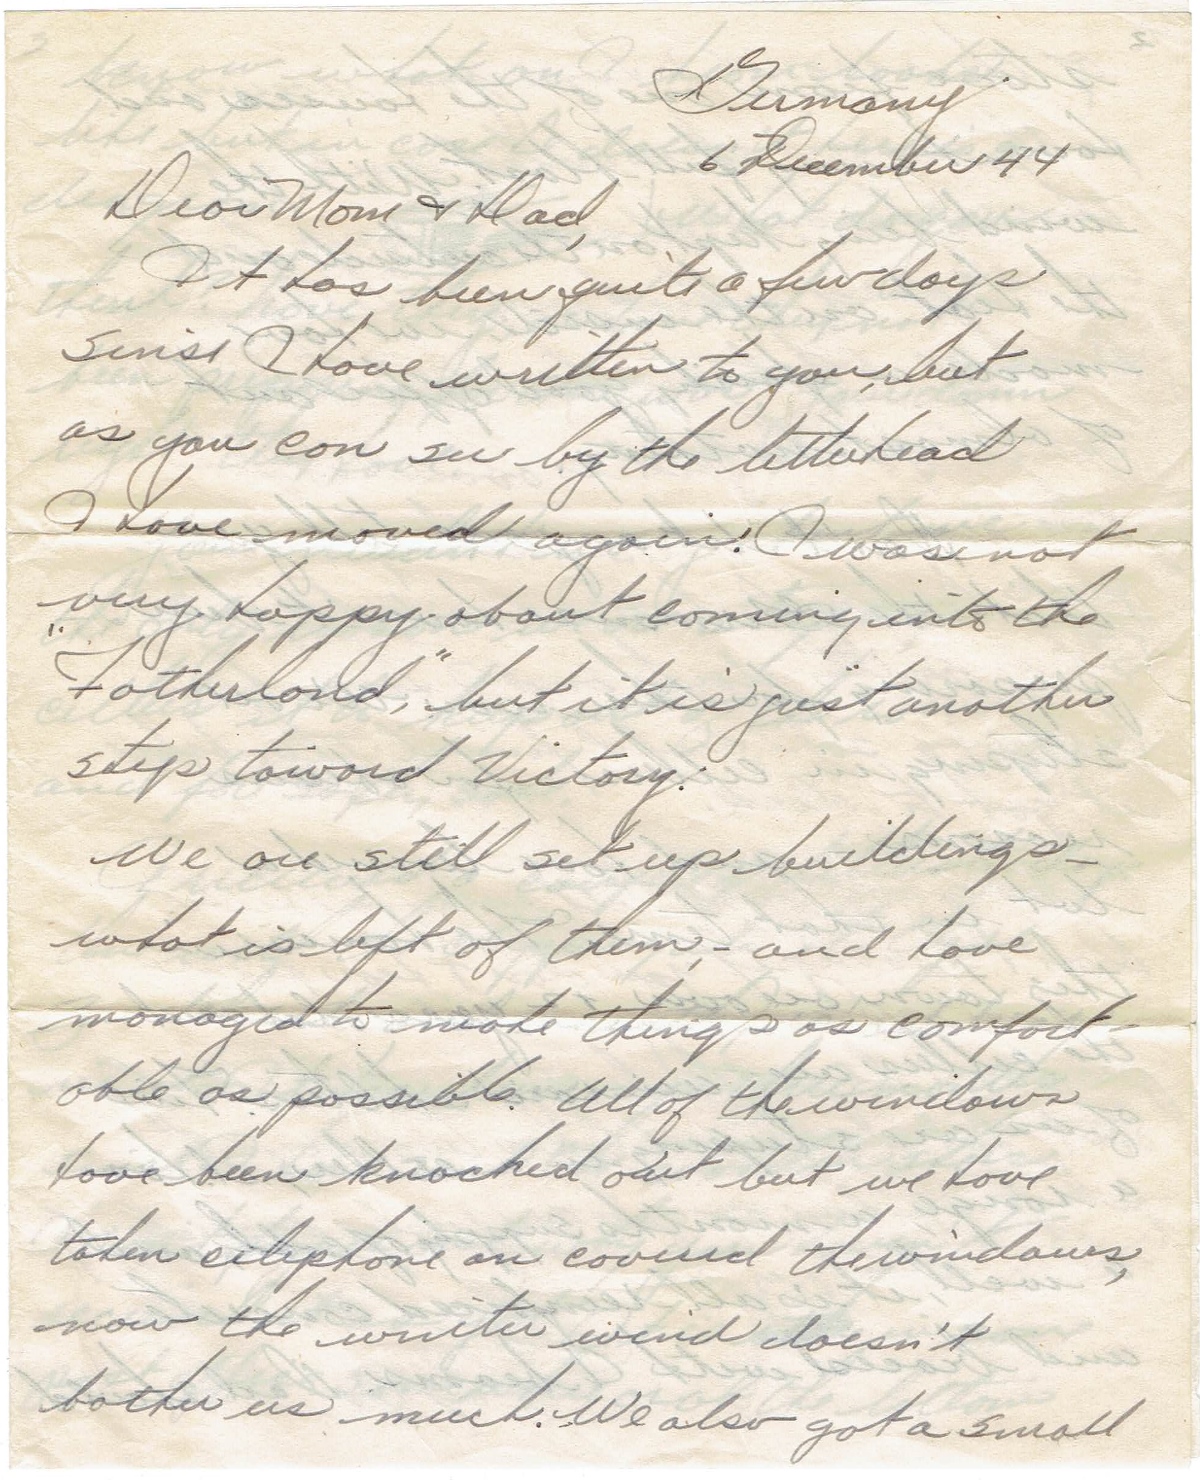 Germany
6 December 44
Dear Mom & Dad,
It has been quite a few days
sinse I have written to you, but
as you can see by the letterhead
I have moved again! I was not
very happy about coming into the
"Fatherland," but it is just another
step toward Victory.
We are still set up buildings -
what is left of them, - and have
managed to make things as comfort-
able as possible. All of the windows
have been knocked out but we have
taken celiphone an covered the windows,
now the winter wind doesn't
bother us much. We also got a small